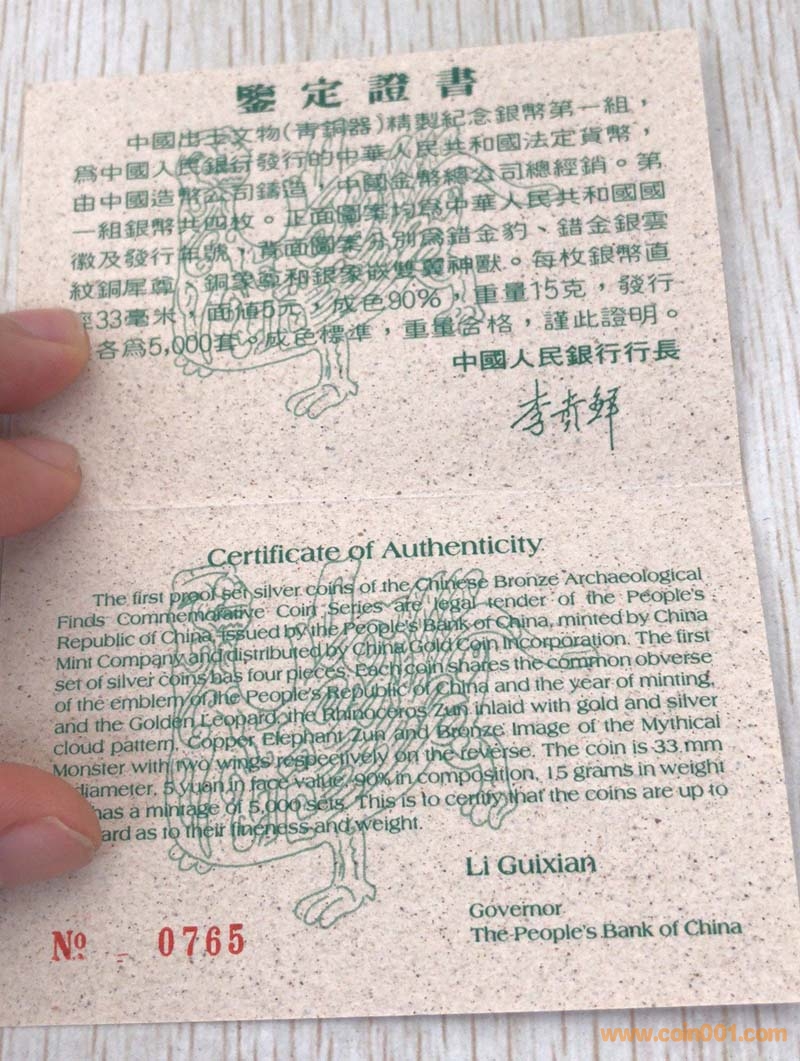 鑒定證書
中國出土文物(青銅器)精製紀念銀幣第一組，
為中國人民銀行發行的中華人民共和國法定貨幣，
由中國造幣公司鑄造，中國金幣總公司總經銷。第
一組銀幣共四枚。正面圖案均為中華人民共和國國
徽及發行年號，背面圖案分別為錯金豹、錯金銀雲
紋銅犀尊、銅象尊和銀象嵌雙翼神獸。每枚銀幣直
徑33毫米，面值5元，成色90%，重量15克，發行
各為5,000套。成色標準，重量合格，謹此證明。
中國人民銀行行長
李贵鲜
Certificate of Authenticity
The first proof set silver coins of the Chinese Bronze Archaeological
Finds Commemorative Coin Series are legal tender of the People's
Republic of China, issued by the People's Bank of China, minted by China
Mint Company and distributed by China Gold Coin Incorporation. The first
set of silver coins has four pieces. Each coin shares the common obverse
of the emblem of the People's Republic of China and the year of minting,
and the Golden Leopard, the Rhinoceros Zun inlaid with gold and silver
cloud pattern, Copper Elephant Zun and Bronze Image of the Mythical
Monster with two wings respectively on the reverse. The coin is 33 mm
diameter, 5 yuan in face value, 90% in composition, 15 grams in weight
has a mintage of 5,000 sets. This is to certify that the coins are up to
ard as to their fineness and weight.
Li Guixian
Governor
The People's Bank of China
№ 0765
www.coin001.com